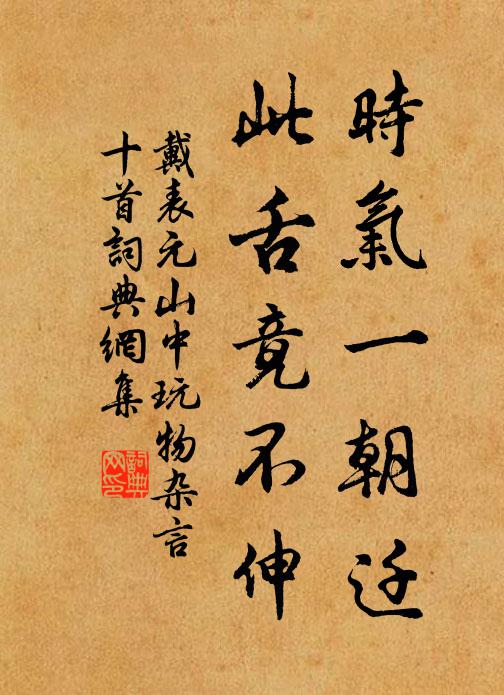 時氣一朝迁
此舌竟不伸
戴表元山中玩物杂言
十首詞典網集
詞典
网印